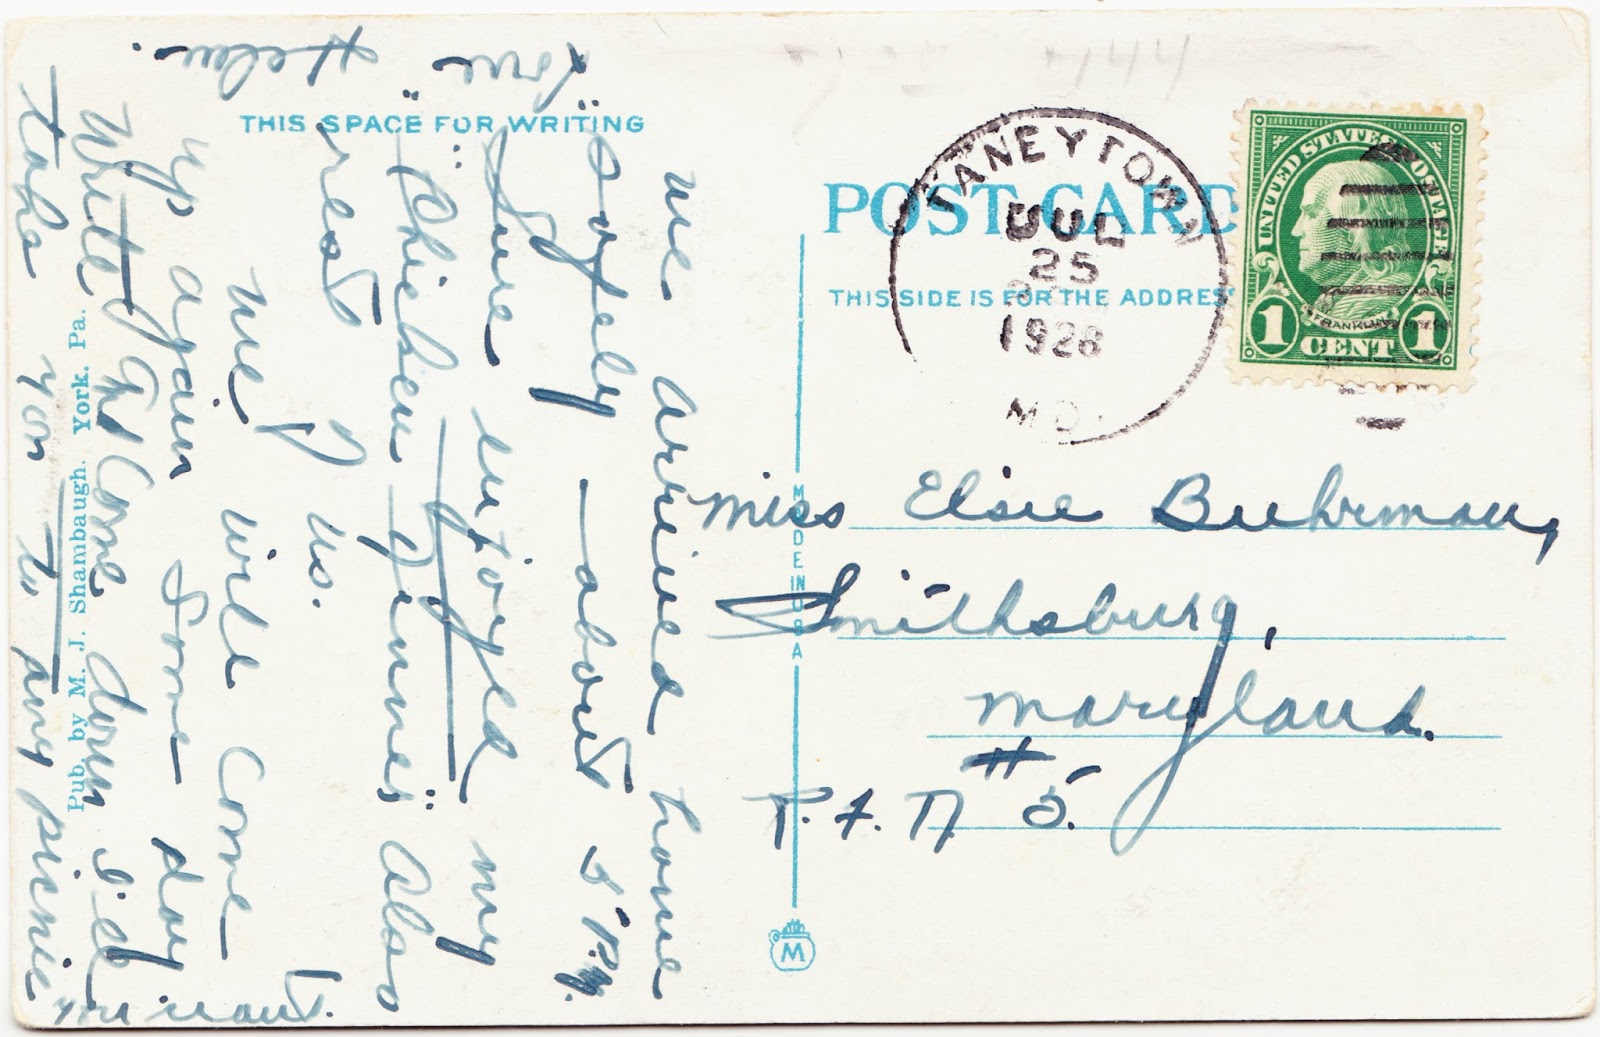 THIS SPACE FOR WRITING
We arrived home
safely — about P.M.
Sure enjoyed my
"Chicken also
rest of us.
We will come
up again some day.
Write and Come down I'd
take you to any picnic
you want.
Love
Helen.
Pub. by M. J. Shambaugh. York. Pa.
POST CARD
THIS SIDE IS FOR THE ADDRESS
TANEYTOWN
JUL
25
1928
MD.
UNITED STATES POSTAGE
FRANKLIN
1 CENT 1
MADE IN U.S.A
M
Miss Elsie Buhrman,
Smithsburg,
Maryland.
R.F.D. # 5.